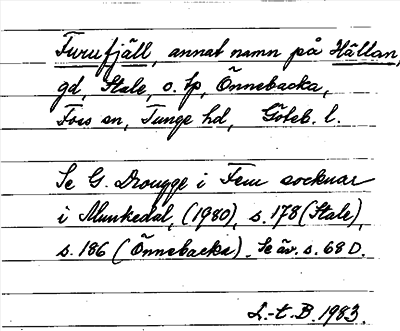 Furufjäll, annat namn på Hällan,
gd, Stale, o. tp, Önnebacka,
Foss sn, Tunge hd, Göteb. l.
Se G. Drougge i Fem socknar
i Munkedal, (1980), s. 178 (Stale),
s. 186 (Önnebacka). Se äv. s. 68 D.
L.-t. B. 1983.